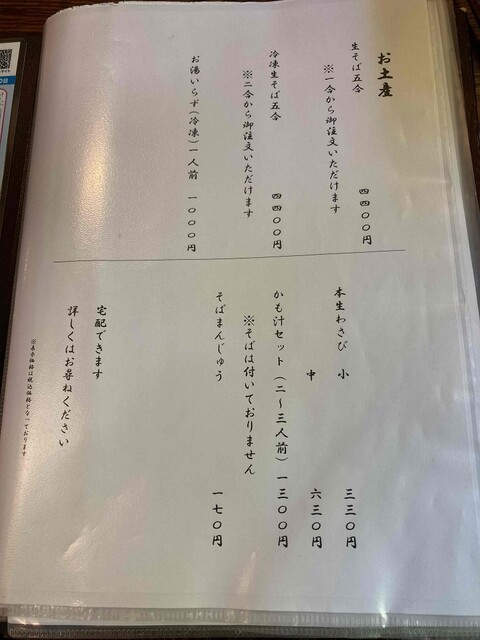 お土産
生そば五合　四四〇〇円
※一合から御注文いただけます
冷凍生そば五合　四四〇〇円
※二合から御注文いただけます
お湯いらず(冷凍)一人前　一〇〇〇円
本生わさび　小　三三〇円
中　六三〇円
かも汁セット(二〜三人前)一三〇〇円
※そばは付いておりません
そばまんじゅう　一七〇円
宅配できます
詳しくはお尋ねください
※表示価格は税込価格となっております